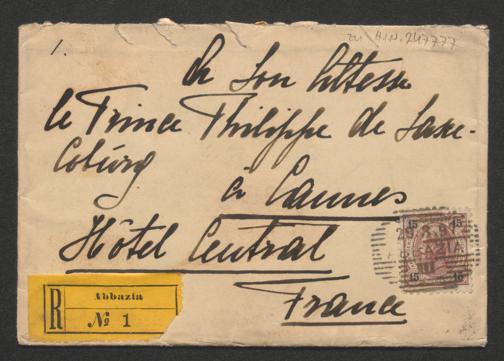 1.
zu H.I.N. 247777
à Son Altesse
le Prince Philippe de Saxe-
Coburg
à Cannes
Hôtel Central
France
15 15
15 15
R Abbazia
№ 1